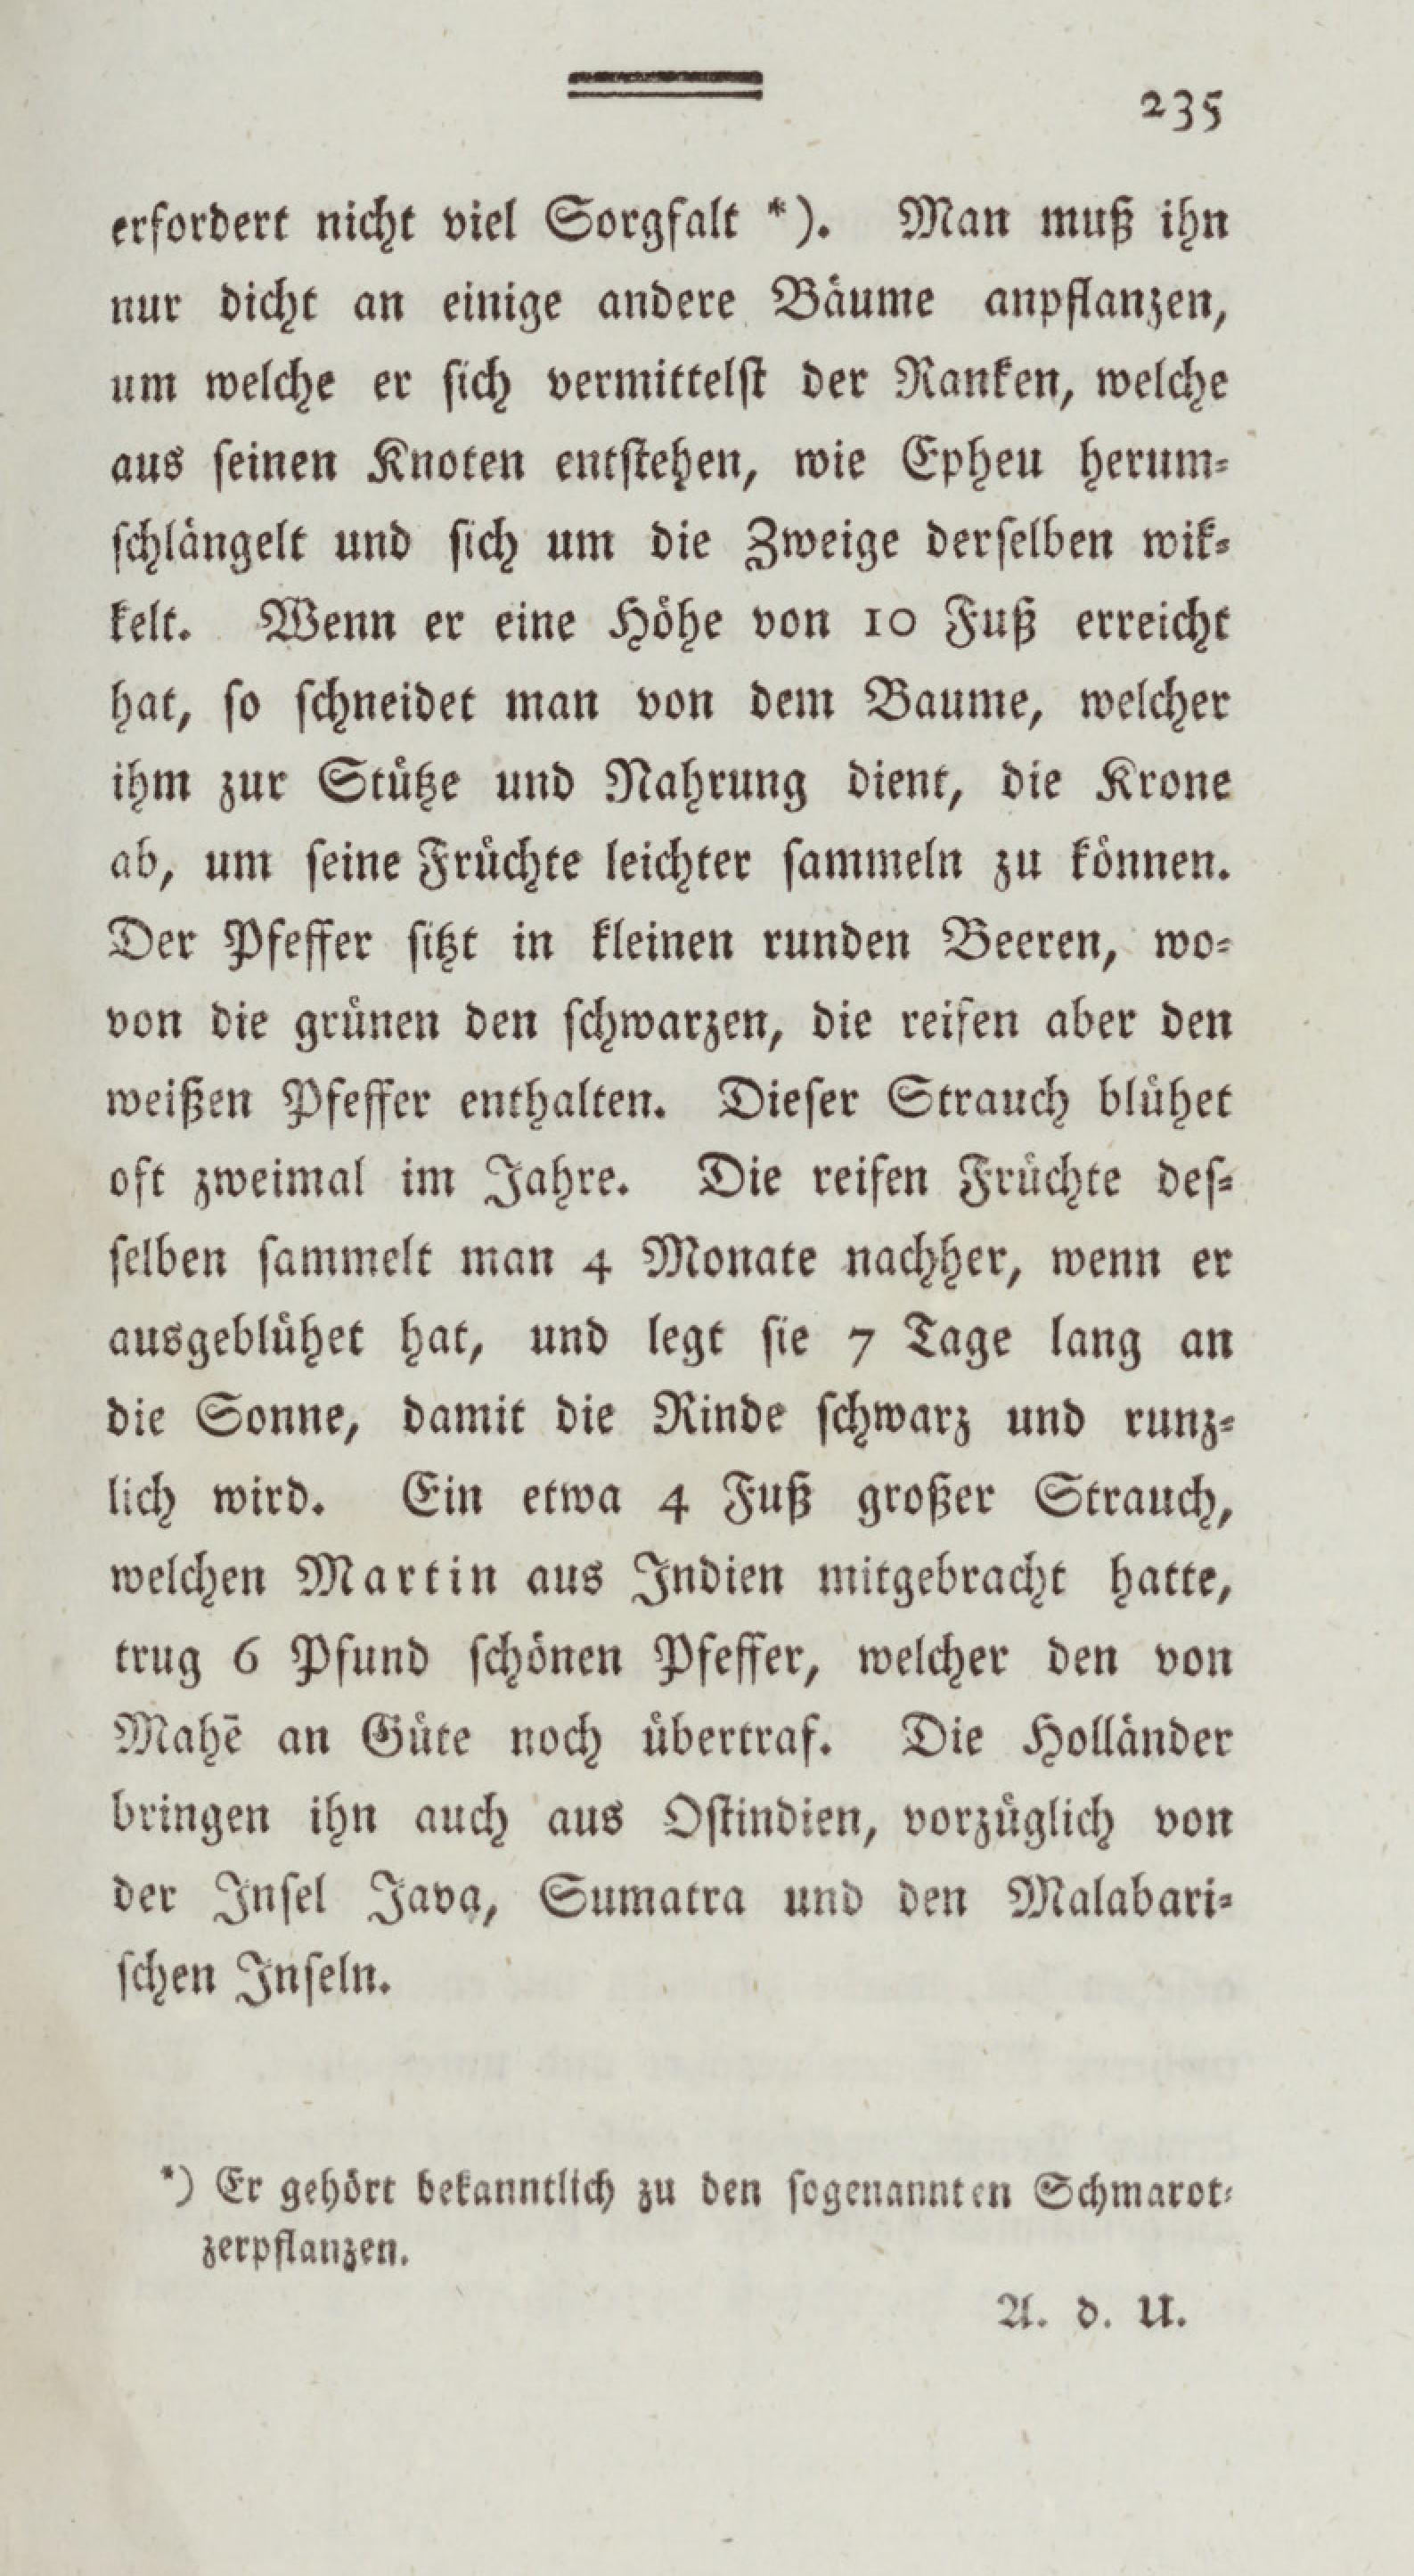 235
erfordert nicht viel Sorgfalt *). Man muß ihn
nur dicht an einige andere Bäume anpflanzen,
um welche er sich vermittelst der Ranken, welche
aus seinen Knoten entstehen, wie Epheu herum-
schlängelt und sich um die Zweige derselben wik-
kelt. Wenn er eine Höhe von 10 Fuß erreicht
hat, so schneidet man von dem Baume, welcher
ihm zur Stütze und Nahrung dient, die Krone
ab, um seine Früchte leichter sammeln zu können.
Der Pfeffer sitzt in kleinen runden Beeren, wo-
von die grünen den schwarzen, die reifen aber den
weißen Pfeffer enthalten. Dieser Strauch blühet
oft zweimal im Jahre. Die reifen Früchte des-
selben sammelt man 4 Monate nachher, wenn er
ausgeblühet hat, und legt sie 7 Tage lang an
die Sonne, damit die Rinde schwarz und runz-
lich wird. Ein etwa 4 Fuß großer Strauch,
welchen Martin aus Indien mitgebracht hatte,
trug 6 Pfund schönen Pfeffer, welcher den von
Mahē an Güte noch übertraf. Die Holländer
bringen ihn auch aus Ostindien, vorzüglich von
der Insel Java, Sumatra und den Malabari-
schen Inseln.
*) Er gehört bekanntlich zu den sogenannten Schmarot-
zerpflanzen.
A. d. U.